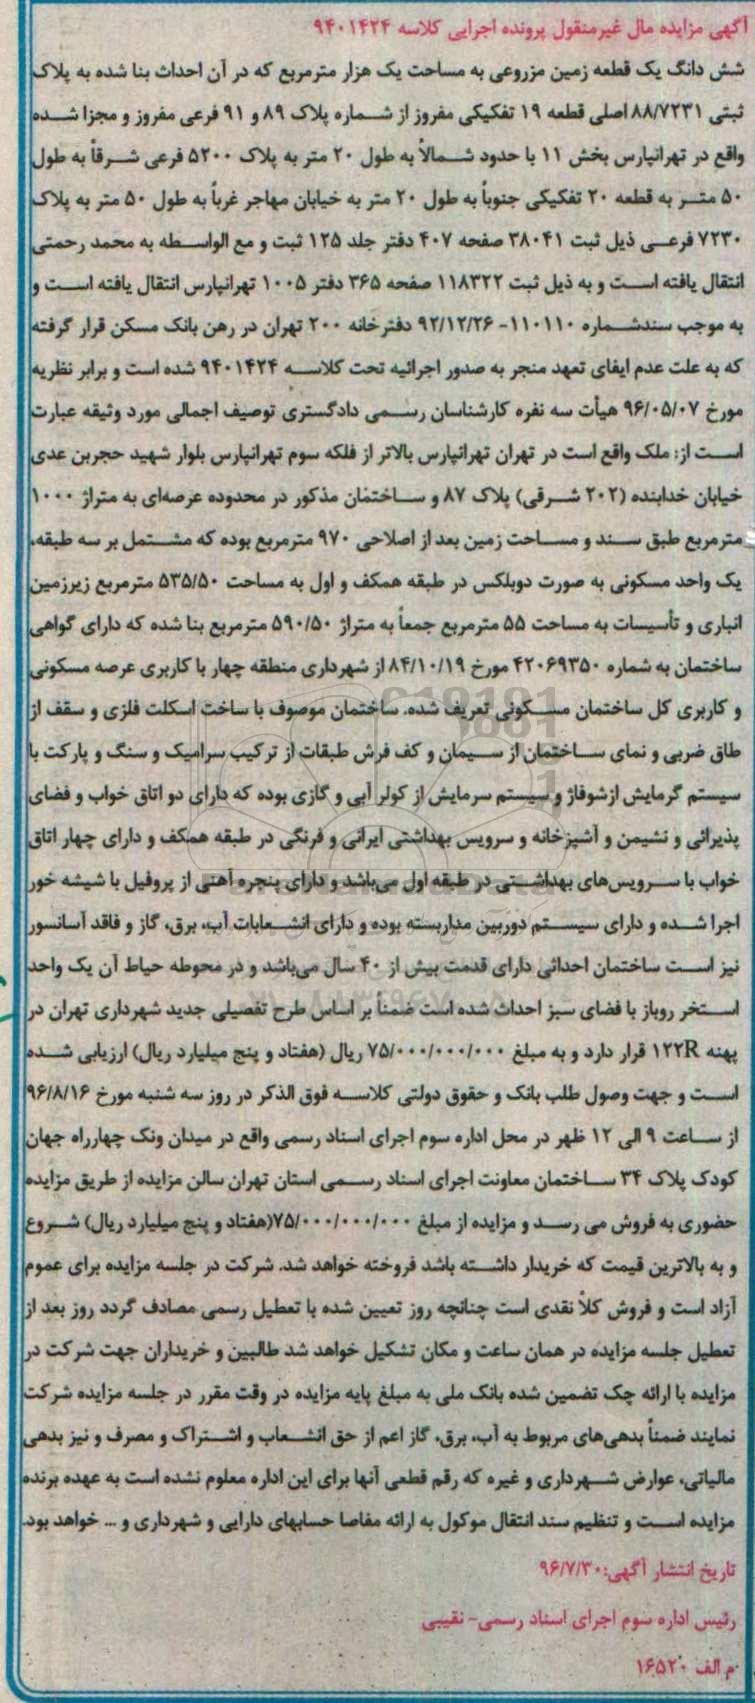 آگهی مزایده مال غیرمنقول پرونده اجرایی کلاسه ۹۴۰۱۴۲۴
شش دانگ یک قطعه زمین مزروعی به مساحت یک هزار مترمربع که در آن احداث بنا شده به پلاک
ثبتی ۸۸/۷۲۳۱ اصلی قطعه ۱۹ تفکیکی مفروز از شماره پلاک ۸۹ و ۹۱ فرعی مفروز و مجزا شده
واقع در تهرانپارس بخش ۱۱ با حدود شمالاً به طول ۲۰ متر به پلاک ۵۲۰۰ فرعی شرقاً به طول
۵۰ متر به قطعه ۲۰ تفکیکی جنوباً به طول ۲۰ متر به خیابان مهاجر غرباً به طول ۵۰ متر به پلاک
۷۲۳۰ فرعی ذیل ثبت ۳۸۰۴۱ صفحه ۴۰۷ دفتر جلد ۱۲۵ ثبت و مع الواسطه به محمد رحمتی
انتقال یافته است و به ذیل ثبت ۱۱۸۳۲۲ صفحه ۳۶۵ دفتر ۱۰۰۵ تهرانپارس انتقال یافته است و
به موجب سندشماره ۱۱۰۱۱۰- ۹۲/۱۲/۲۶ دفترخانه ۲۰۰ تهران در رهن بانک مسکن قرار گرفته
که به علت عدم ایفای تعهد منجر به صدور اجرائیه تحت کلاسه ۹۴۰۱۴۲۴ شده است و برابر نظریه
مورخ ۹۶/۰۵/۰۷ هیأت سه نفره کارشناسان رسمی دادگستری توصیف اجمالی مورد وثیقه عبارت
است از: ملک واقع است در تهران تهرانپارس بالاتر از فلکه سوم تهرانپارس بلوار شهید حجربن عدی
خیابان خدابنده (۲۰۲ شرقی) پلاک ۸۷ و ساختمان مذکور در محدوده عرصه‌ای به متراژ ۱۰۰۰
مترمربع طبق سند و مساحت زمین بعد از اصلاحی ۹۷۰ مترمربع بوده که مشتمل بر سه طبقه،
یک واحد مسکونی به صورت دوبلکس در طبقه همکف و اول به مساحت ۵۳۵/۵۰ مترمربع زیرزمین
انباری و تأسیسات به مساحت ۵۵ مترمربع جمعاً به متراژ ۵۹۰/۵۰ مترمربع بنا شده که دارای گواهی
ساختمان به شماره ۴۲۰۶۹۳۵۰ مورخ ۸۴/۱۰/۱۹ از شهرداری منطقه چهار با کاربری عرصه مسکونی
و کاربری کل ساختمان مسکونی تعریف شده. ساختمان موصوف با ساخت اسکلت فلزی و سقف از
طاق ضربی و نمای ساختمان از سیمان و کف فرش طبقات از ترکیب سرامیک و سنگ و پارکت با
سیستم گرمایش ازشوفاژ و سیستم سرمایش از کولر آبی و گازی بوده که دارای دو اتاق خواب و فضای
پذیرائی و نشیمن و آشپزخانه و سرویس بهداشتی ایرانی و فرنگی در طبقه همکف و دارای چهار اتاق
خواب با سرویس‌های بهداشتی در طبقه اول می‌باشد و دارای پنجره آهنی از پروفیل با شیشه خور
اجرا شده و دارای سیستم دوربین مداربسته بوده و دارای انشعابات آب، برق، گاز و فاقد آسانسور
نیز است ساختمان احداثی دارای قدمت بیش از ۴۰ سال می‌باشد و در محوطه حیاط آن یک واحد
استخر روباز با فضای سبز احداث شده است ضمناً بر اساس طرح تفصیلی جدید شهرداری تهران در
پهنه ۱۲۲R قرار دارد و به مبلغ ۷۵/۰۰۰/۰۰۰/۰۰۰ ریال (هفتاد و پنج میلیارد ریال) ارزیابی شده
است و جهت وصول طلب بانک و حقوق دولتی کلاسه فوق الذکر در روز سه شنبه مورخ ۹۶/۸/۱۶
از ساعت ۹ الی ۱۲ ظهر در محل اداره سوم اجرای اسناد رسمی واقع در میدان ونک چهارراه جهان
کودک پلاک ۳۴ ساختمان معاونت اجرای اسناد رسمی استان تهران سالن مزایده از طریق مزایده
حضوری به فروش می رسد و مزایده از مبلغ ۷۵/۰۰۰/۰۰۰/۰۰۰(هفتاد و پنج میلیارد ریال) شروع
و به بالاترین قیمت که خریدار داشته باشد فروخته خواهد شد. شرکت در جلسه مزایده برای عموم
آزاد است و فروش کلاً نقدی است چنانچه روز تعیین شده با تعطیل رسمی مصادف گردد روز بعد از
تعطیل جلسه مزایده در همان ساعت و مکان تشکیل خواهد شد طالبین و خریداران جهت شرکت در
مزایده با ارائه چک تضمین شده بانک ملی به مبلغ پایه مزایده در وقت مقرر در جلسه مزایده شرکت
نمایند ضمناً بدهی‌های مربوط به آب، برق، گاز اعم از حق انشعاب و اشتراک و مصرف و نیز بدهی
مالیاتی، عوارض شهرداری و غیره که رقم قطعی آنها برای این اداره معلوم نشده است به عهده برنده
مزایده است و تنظیم سند انتقال موکول به ارائه مفاصا حسابهای دارایی و شهرداری و ... خواهد بود.
تاریخ انتشار آگهی:۹۶/۷/۳۰
رئیس اداره سوم اجرای اسناد رسمی- نقیبی
م الف ۱۶۵۲۰